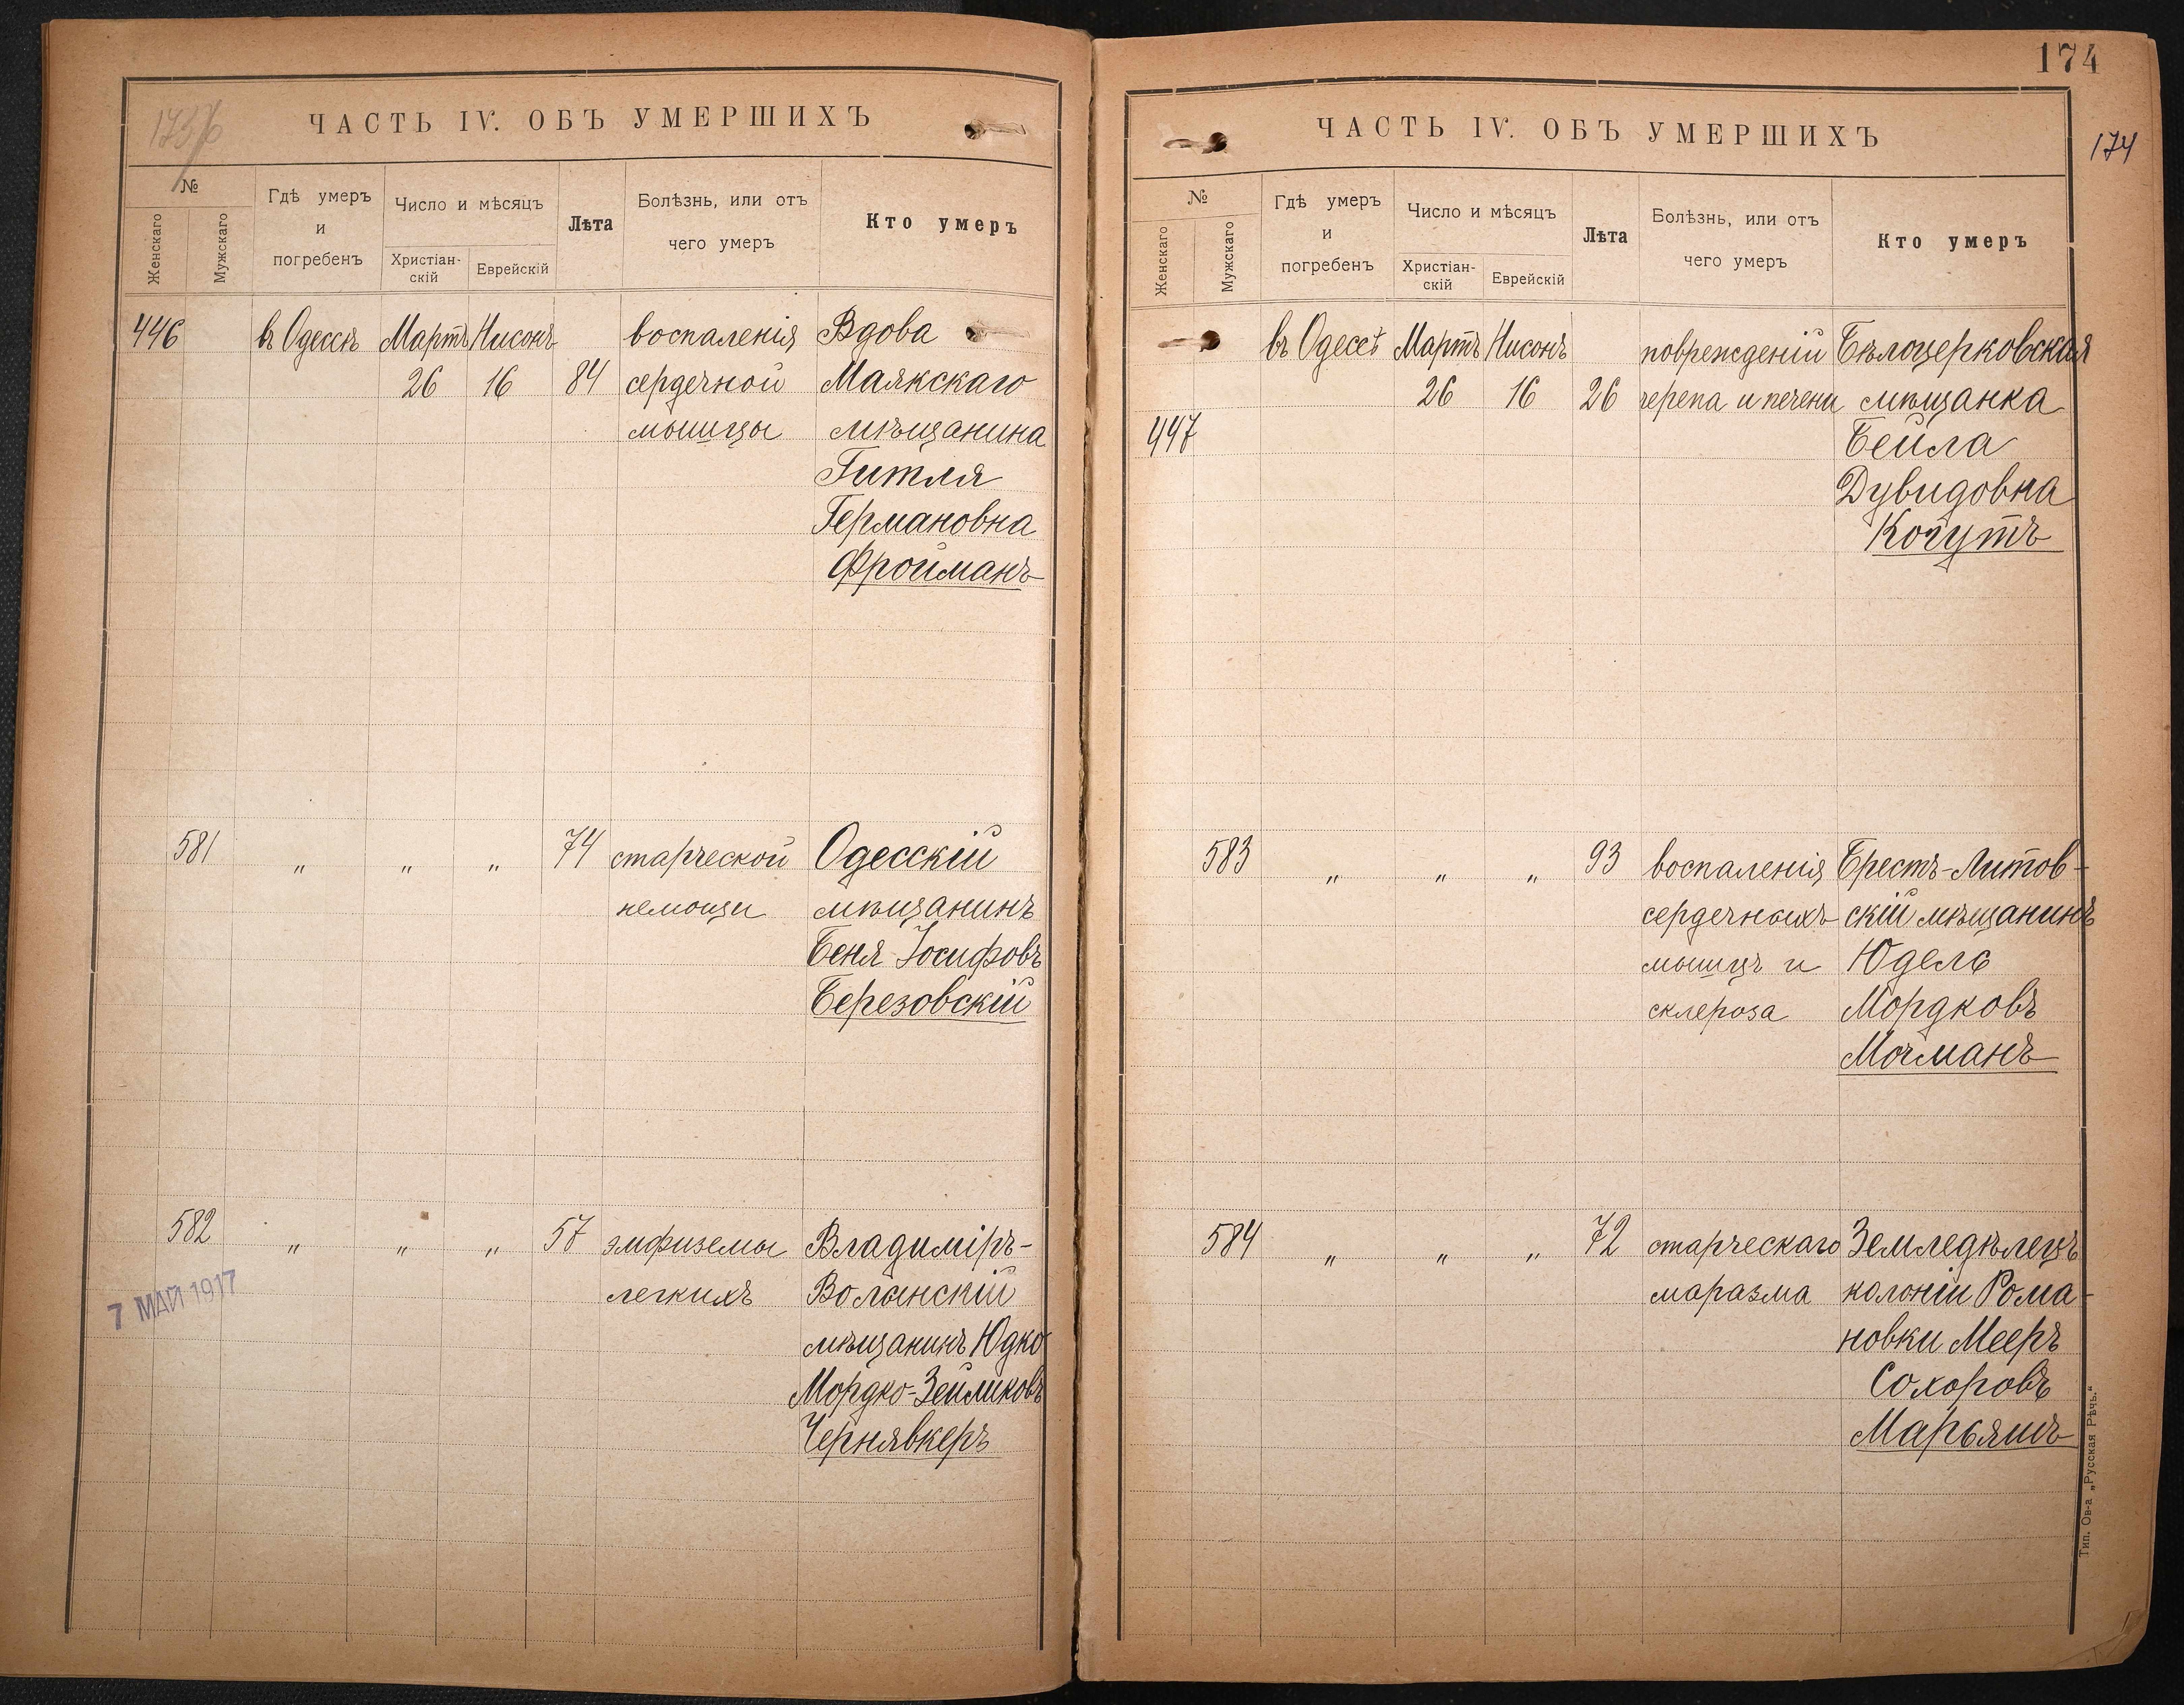 173/б
ЧАСТЬ IV. ОБЪ УМЕРШИХЪ
№
Женскаго
Мужскаго
Гдѣ умеръ
и
погребенъ
Число и мѣсяцъ
Христіан-
скій
Еврейскій
Лѣта
Болѣзнь, или отъ
чего умеръ
Кто умеръ
446 въ Одессѣ Мартъ Нисонъ воспаленія Вдова
26 16 84 сердечной Маякскаго
мышцы мѣщанина
Гитля
Германовна
Фройманъ
581 „ „ „ 74 старческой Одесскій
немощи мѣщанинъ
Беня Іосифовъ
Березовскій
582 „ „ „ 57 эмфиземы Владиміръ-
легкихъ Волынскій
7 МАЙ 1917
мѣщанинъ Юдко
Мордко-Зейликовъ
Чернявкеръ
174
174
ЧАСТЬ IV. ОБЪ УМЕРШИХЪ
№
Женскаго
Мужскаго
Гдѣ умеръ
и
погребенъ
Число и мѣсяцъ
Христіан-
скій
Еврейскій
Лѣта
Болѣзнь, или отъ
чего умеръ
Кто умеръ
въ Одессѣ Мартъ Нисонъ поврежденій Бѣлоцерковская
26 16 26 черепа и печени мѣщанка
447 Бейла
Дувидовна
Когутъ
583 „ „ „ 93 воспаленія Брестъ-Литов-
сердечныхъ скій мѣщанинъ
мышцъ и Юдель
склероза Мордковъ
Мочманъ
584 „ „ „ 72 старческаго Земледѣлецъ
маразма колоніи Рома-
новки Мееръ
Сохоровъ
Марьяшъ
Тип. Ов-а „Русская Рѣчь.“